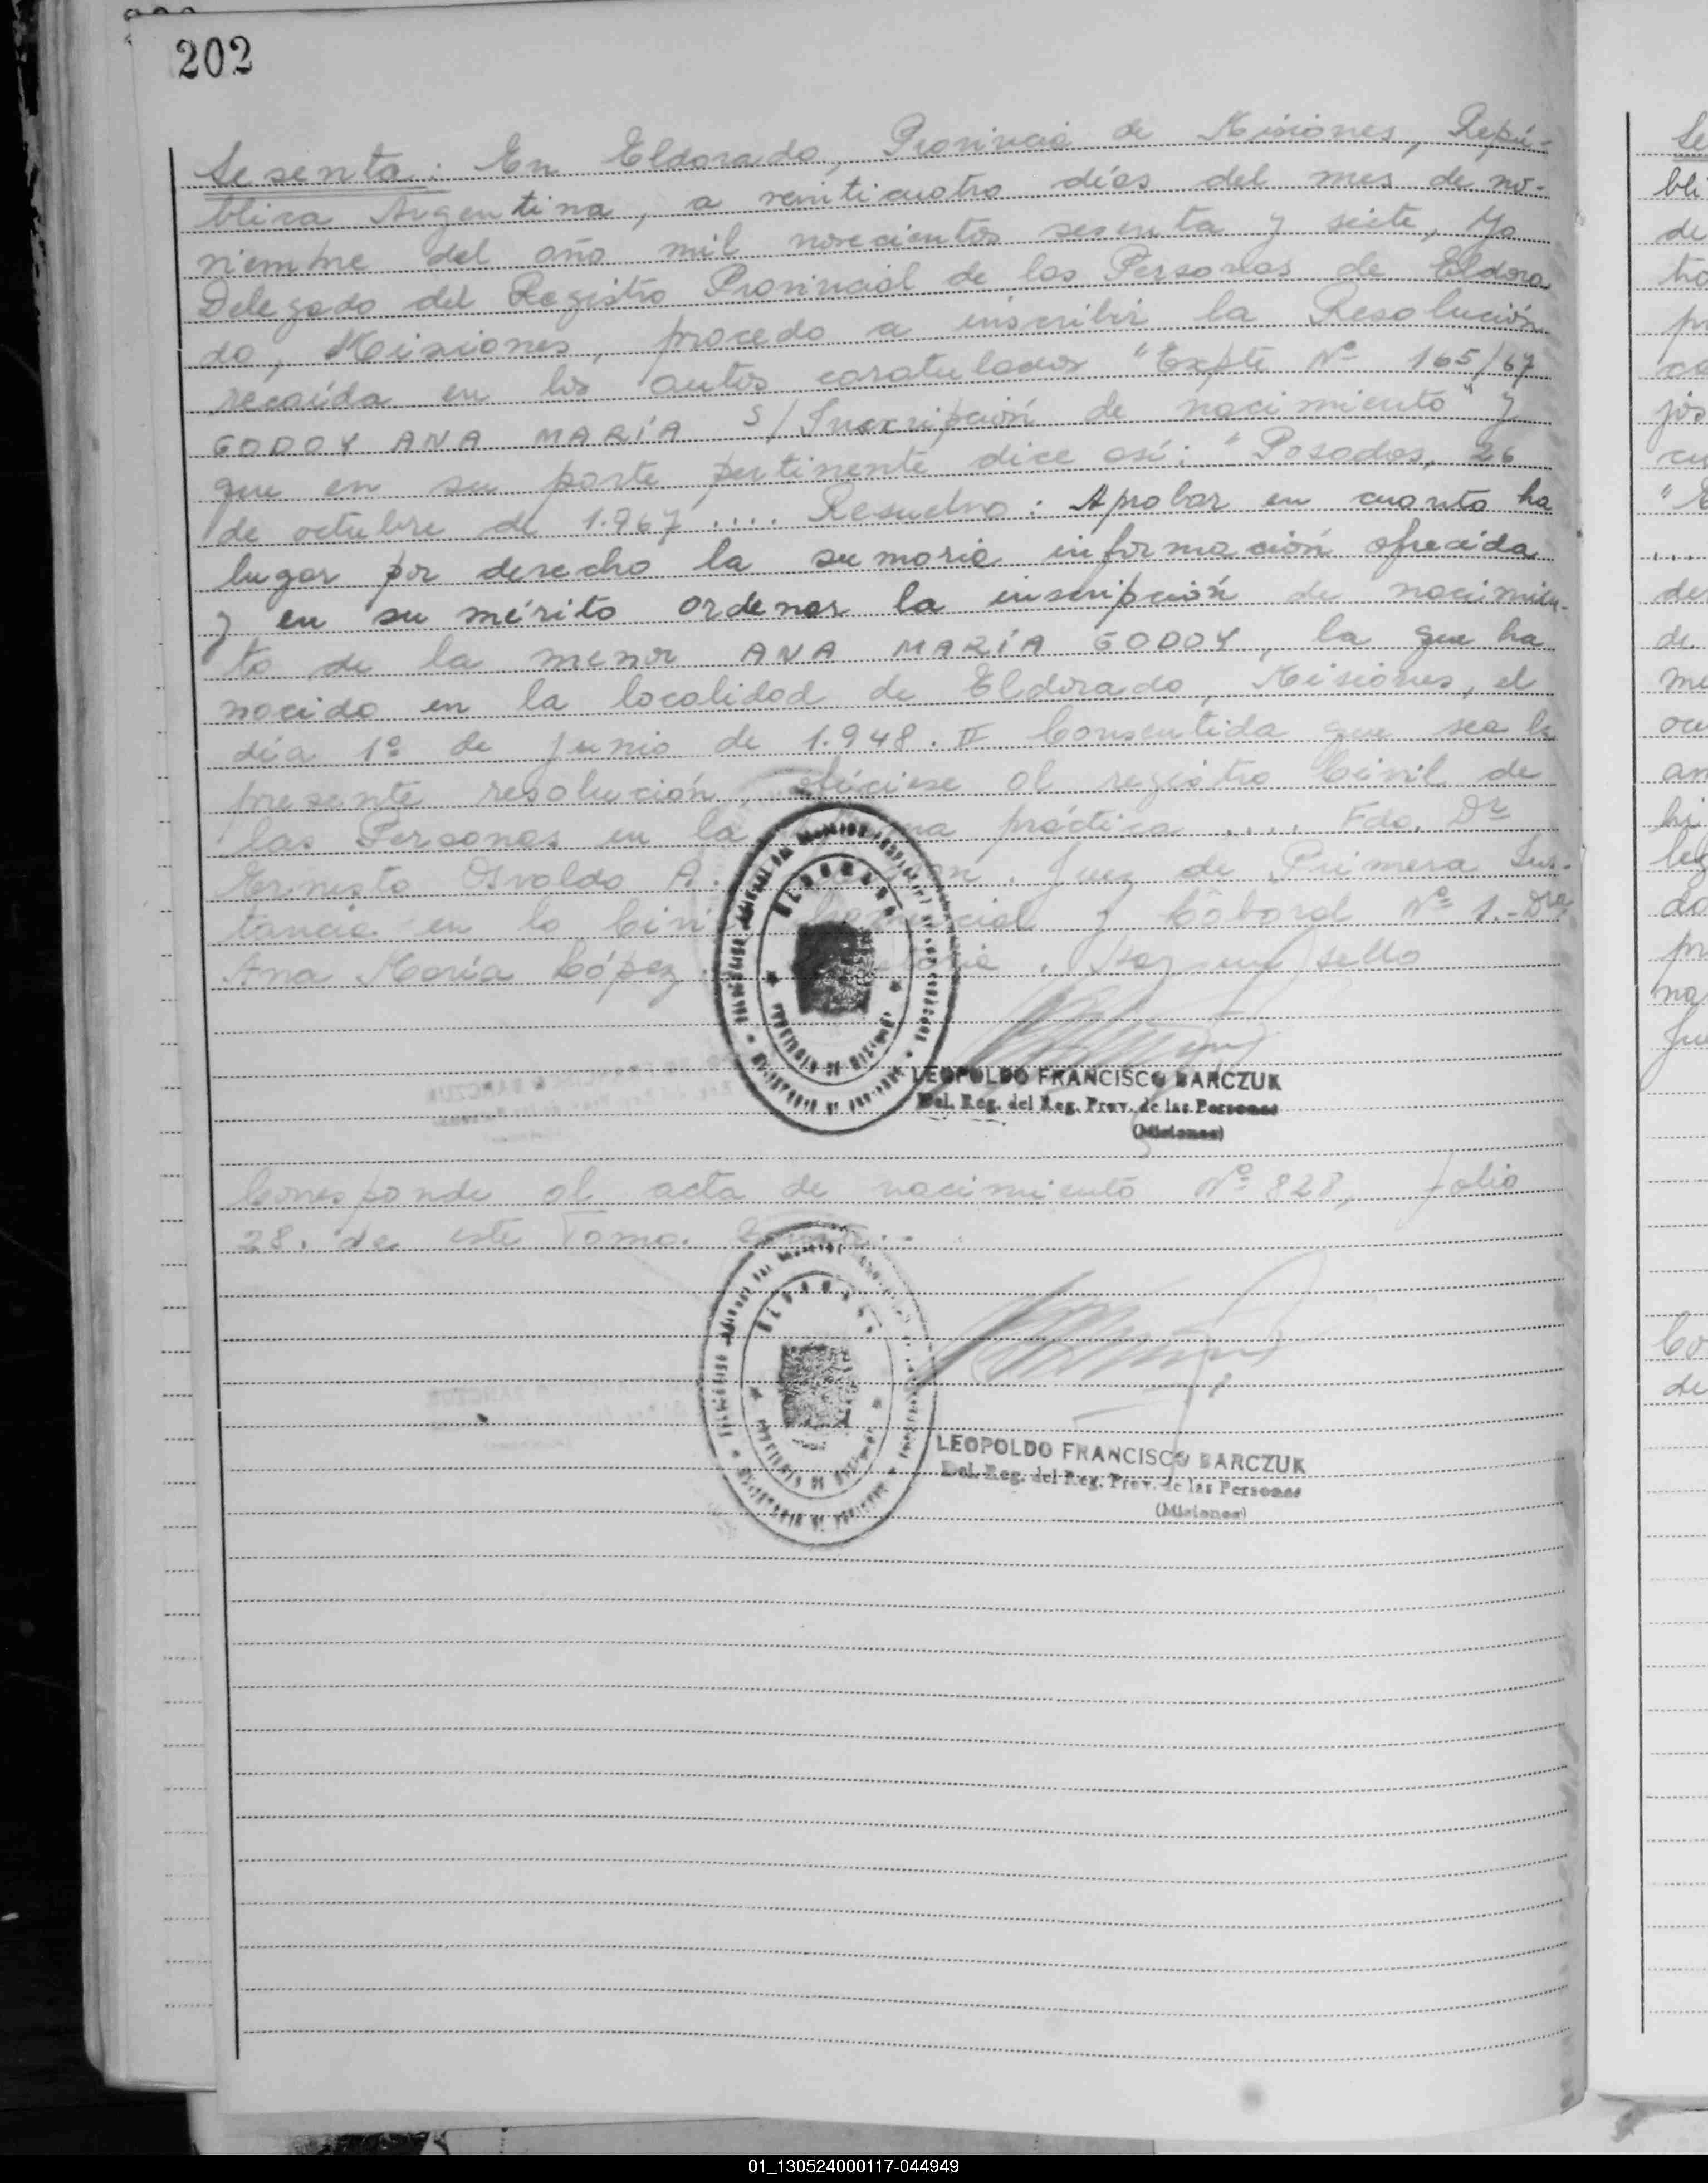 202
Sesenta: En Eldorado, Provincia de Misiones, Repú-
blica Argentina, a veinticuatro días del mes de no-
viembre del año mil novecientos sesenta y siete, Yo
Delegado del Registro Provincial de las Personas de Eldora
do, Misiones, procedo a inscribir la Resolución
recaída en los autos caratulados "Expte Nº 165/67
GODOY ANA MARÍA S/Inscripción de nacimiento" y
que en su parte pertinente dice así: "Posadas, 26
de octubre de 1.967 .... Resuelvo: Aprobar en cuanto ha
lugar por derecho la sumaria información ofrecida
y en su mérito ordenar la inscripción de nacimien-
to de la menor ANA MARÍA GODOY, la que ha
nacido en la localidad de Eldorado, Misiones, el
día 1º de junio de 1.948. II Consentida que sea la
presente resolución, ofíciese al registro Civil de
las Personas en la práctica .... Fdo. Dr
Ernesto Osvaldo A. Juez de Primera Ins-
tancia en lo Civil Comercial y Laboral Nº 1.-Dra
Ana María López. . Hay un sello
LEOPOLDO FRANCISCO BARCZUK
Del. Reg. del Reg. Prov. de las Personas
(Misiones)
Corresponde al acta de nacimiento Nº 828, folio
28. de este Tomo.
ELDORADO
PROVINCIA DE MISIONES
LEOPOLDO FRANCISCO BARCZUK
Del. Reg. del Reg. Prov. de las Personas
(Misiones)
01_130524000117-044949